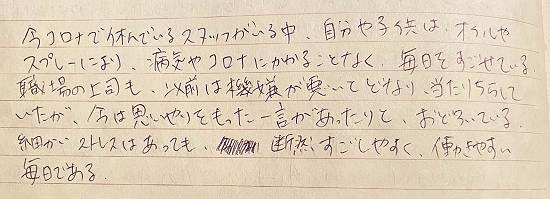 今コロナで休んでいるスタッフがいる中、自分や子供は、オイルや
スプレーにより、病気やコロナにかかることなく、毎日をすごせている。
職場の上司も、以前は機嫌が悪いとどなり、当たりちらして
いたが、今は思いやりをもった一言があったりと、おどろいている。
細かいストレスはあっても、断然、すごしやすく、働きやすい
毎日である。